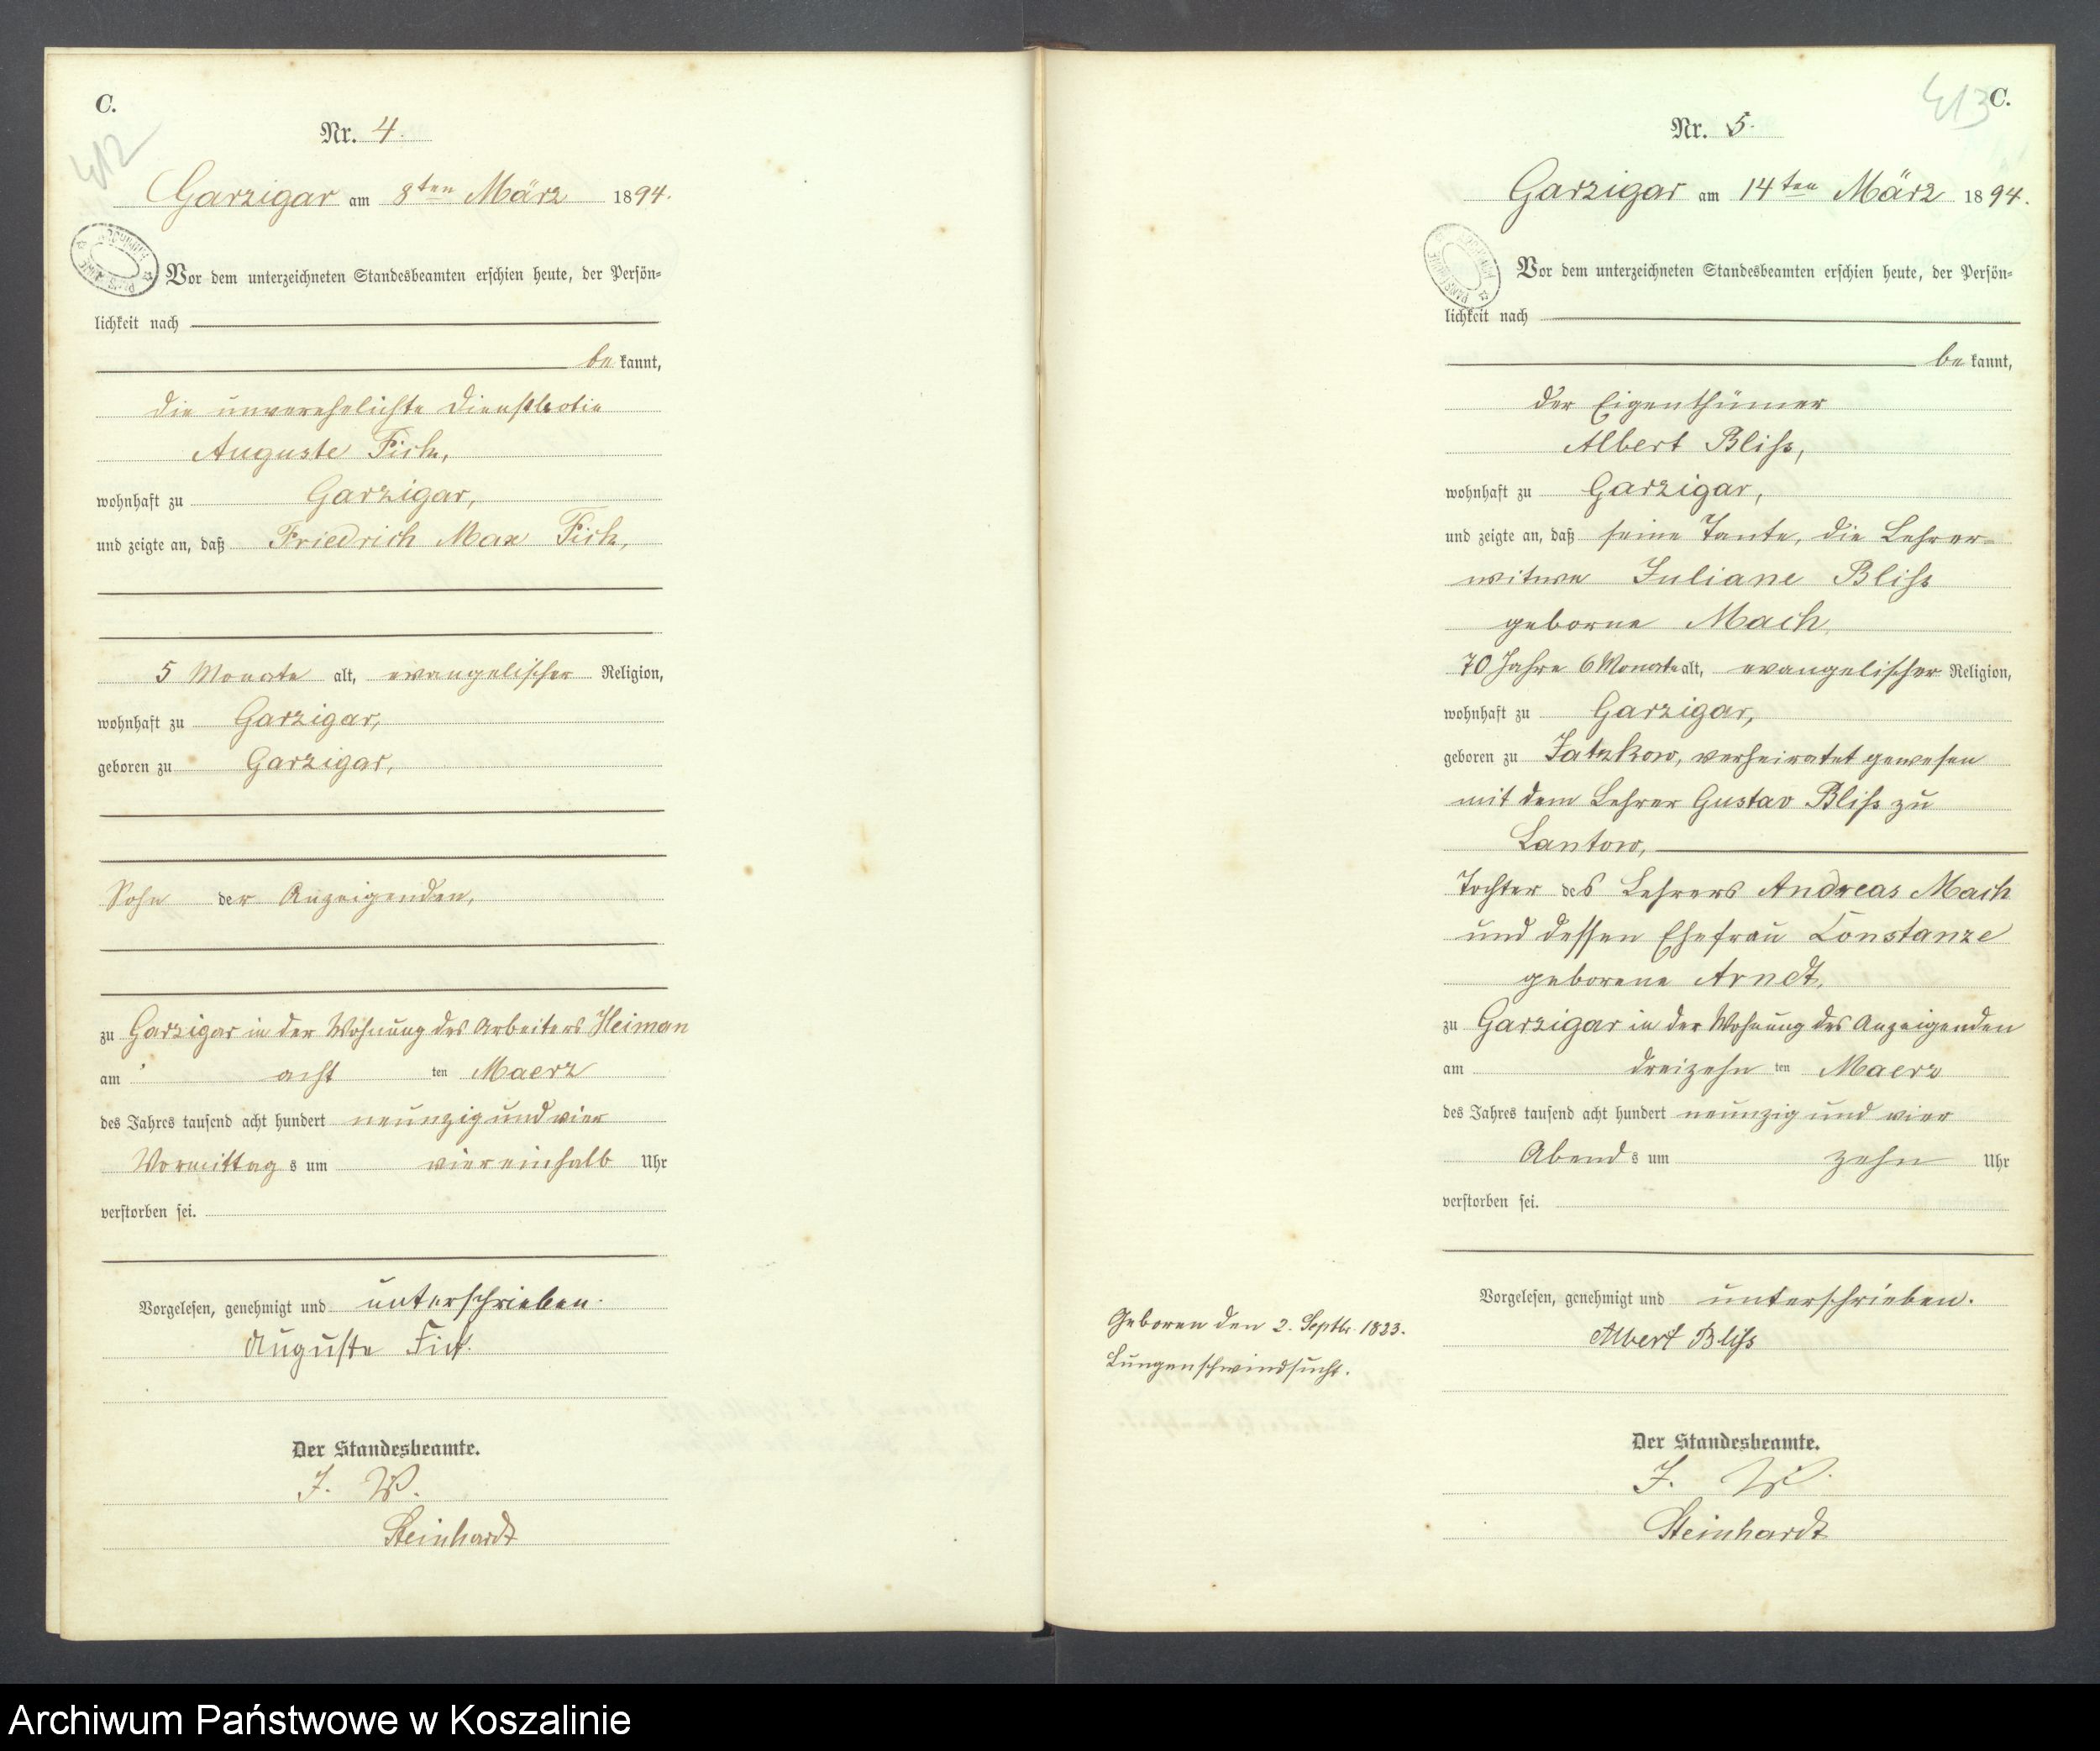 C.
412
Nr. 4.
Garzigar am 8ten März 1894.
Vor dem unterzeichneten Standesbeamten erschien heute, der Persön-
lichkeit nach
bekannt,
die unverehelichte Dienstbotin
Auguste Fick,
wohnhaft zu Garzigar,
und zeigte an, daß Friedrich Max Fick,
5 Monate alt, evangelischer Religion,
wohnhaft zu Garzigar,
geboren zu Garzigar,
Sohn der Anzeigenden,
zu Garzigar in der Wohnung des Arbeiters Heiman
am acht ten Maerz
des Jahres tausend acht hundert neunzig und vier
Vormittags um vier einhalb Uhr
verstorben sei.
Vorgelesen, genehmigt und unterschrieben.
Auguste Fick.
Der Standesbeamte.
J. V.
Steinhardt
413
C.
Nr. 5.
Garzigar am 14ten März 1894.
Vor dem unterzeichneten Standesbeamten erschien heute, der Persön-
lichkeit nach
bekannt,
der Eigenthümer
Albert Bliss,
wohnhaft zu Garzigar,
und zeigte an, daß seine Tante, die Lehrer-
witwe Juliane Bliss
geborne Mach
70 Jahre 6 Monate alt, evangelischer Religion,
wohnhaft zu Garzigar,
geboren zu Jatzkow, verheiratet gewesen
mit dem Lehrer Gustav Bliss zu
Lantow,
Tochter des Lehrers Andreas Mach
und dessen Ehefrau Constanze
geborene Arndt,
zu Garzigar in der Wohnung des Anzeigenden
am dreizehn ten Maerz
des Jahres tausend acht hundert neunzig und vier
Abends um zehn Uhr
verstorben sei.
Vorgelesen, genehmigt und unterschrieben.
Albert Bliss
Geboren den 2. Septbr. 1823.
Lungenschwindsucht.
Der Standesbeamte.
J. V.
Steinhardt
Archiwum Państwowe w Koszalinie